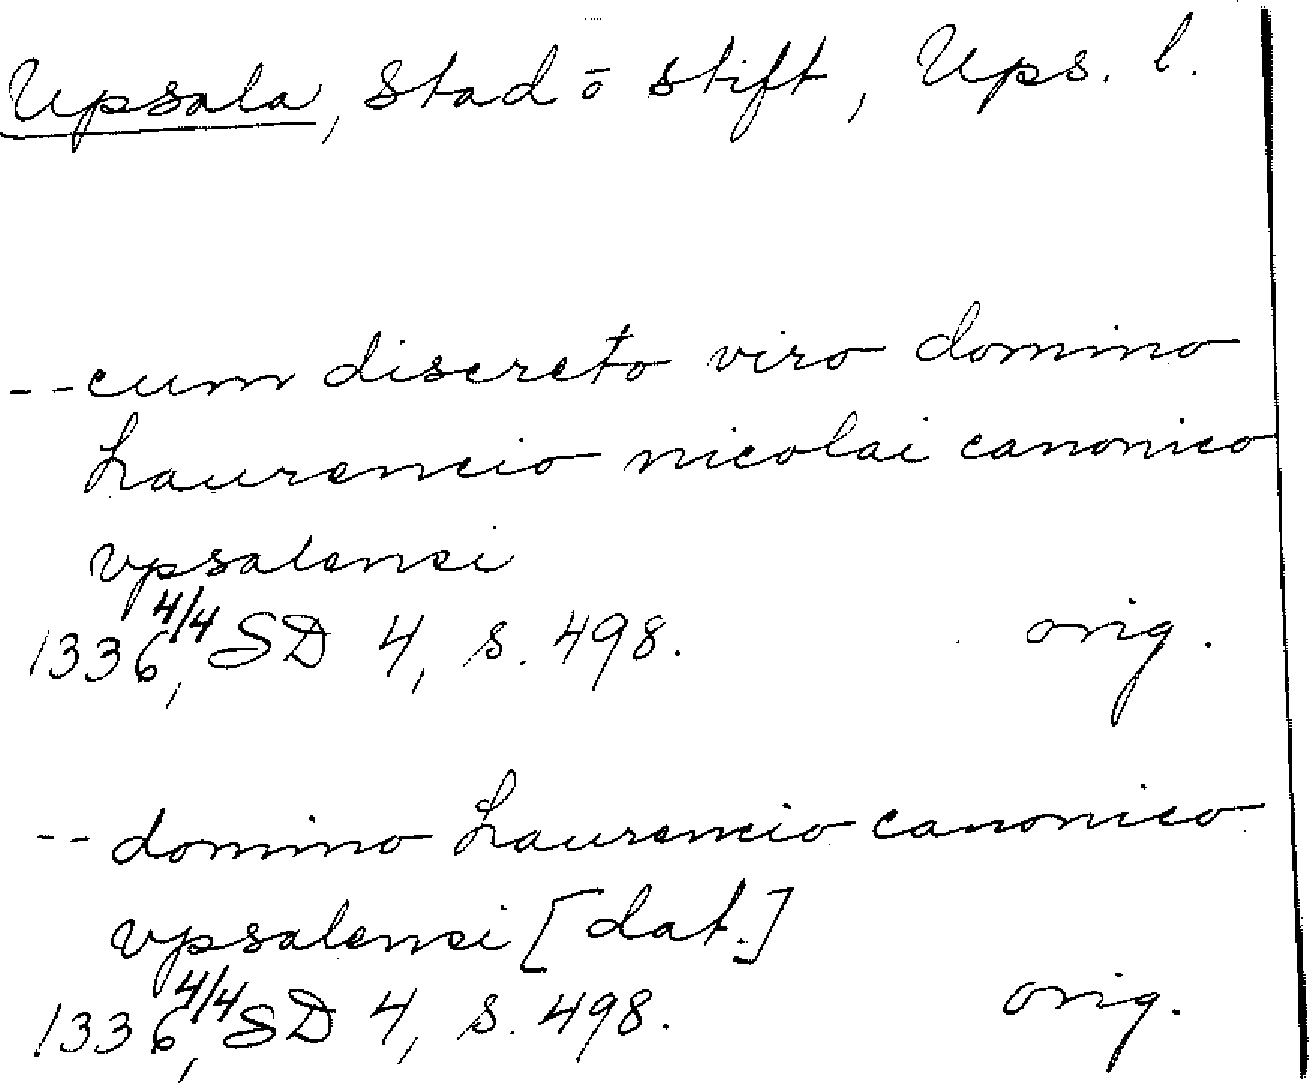 Upsala, stad ō stift, Ups. l.
--cum discreto viro domino
Laurencio nicolai canonico
vpsalensi
1336 4/4, SD 4, s. 498. orig.
-- domino Laurencio canonico
vpsalensi [dat.]
1336 4/4, SD 4, s. 498. orig.